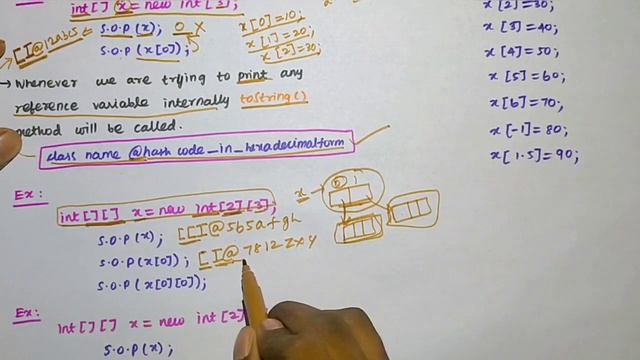 int[] x = new int[3];
[I@12abc5 ← S.O.P(x); 0 X
S.O.P(x[0]);
x[0]=10;
x[1]=20;
x[2]=30;
→ Whenever we are trying to print any
reference variable internally toString()
method will be called.
class name @hash code_in_hexadecimal form
Ex:
int[][] x = new int[2][3];
S.O.P(x); [[I@5b5afgh
S.O.P(x[0]); [I@7812zxy
S.O.P(x[0][0]);
x →
Ex:
int[][] x = new int[2]
S.O.P(x);
x[2]=30;
x[3]=40;
x[4]=50;
x[5]=60;
x[6]=70;
x[-1]=80;
x[1.5]=90;